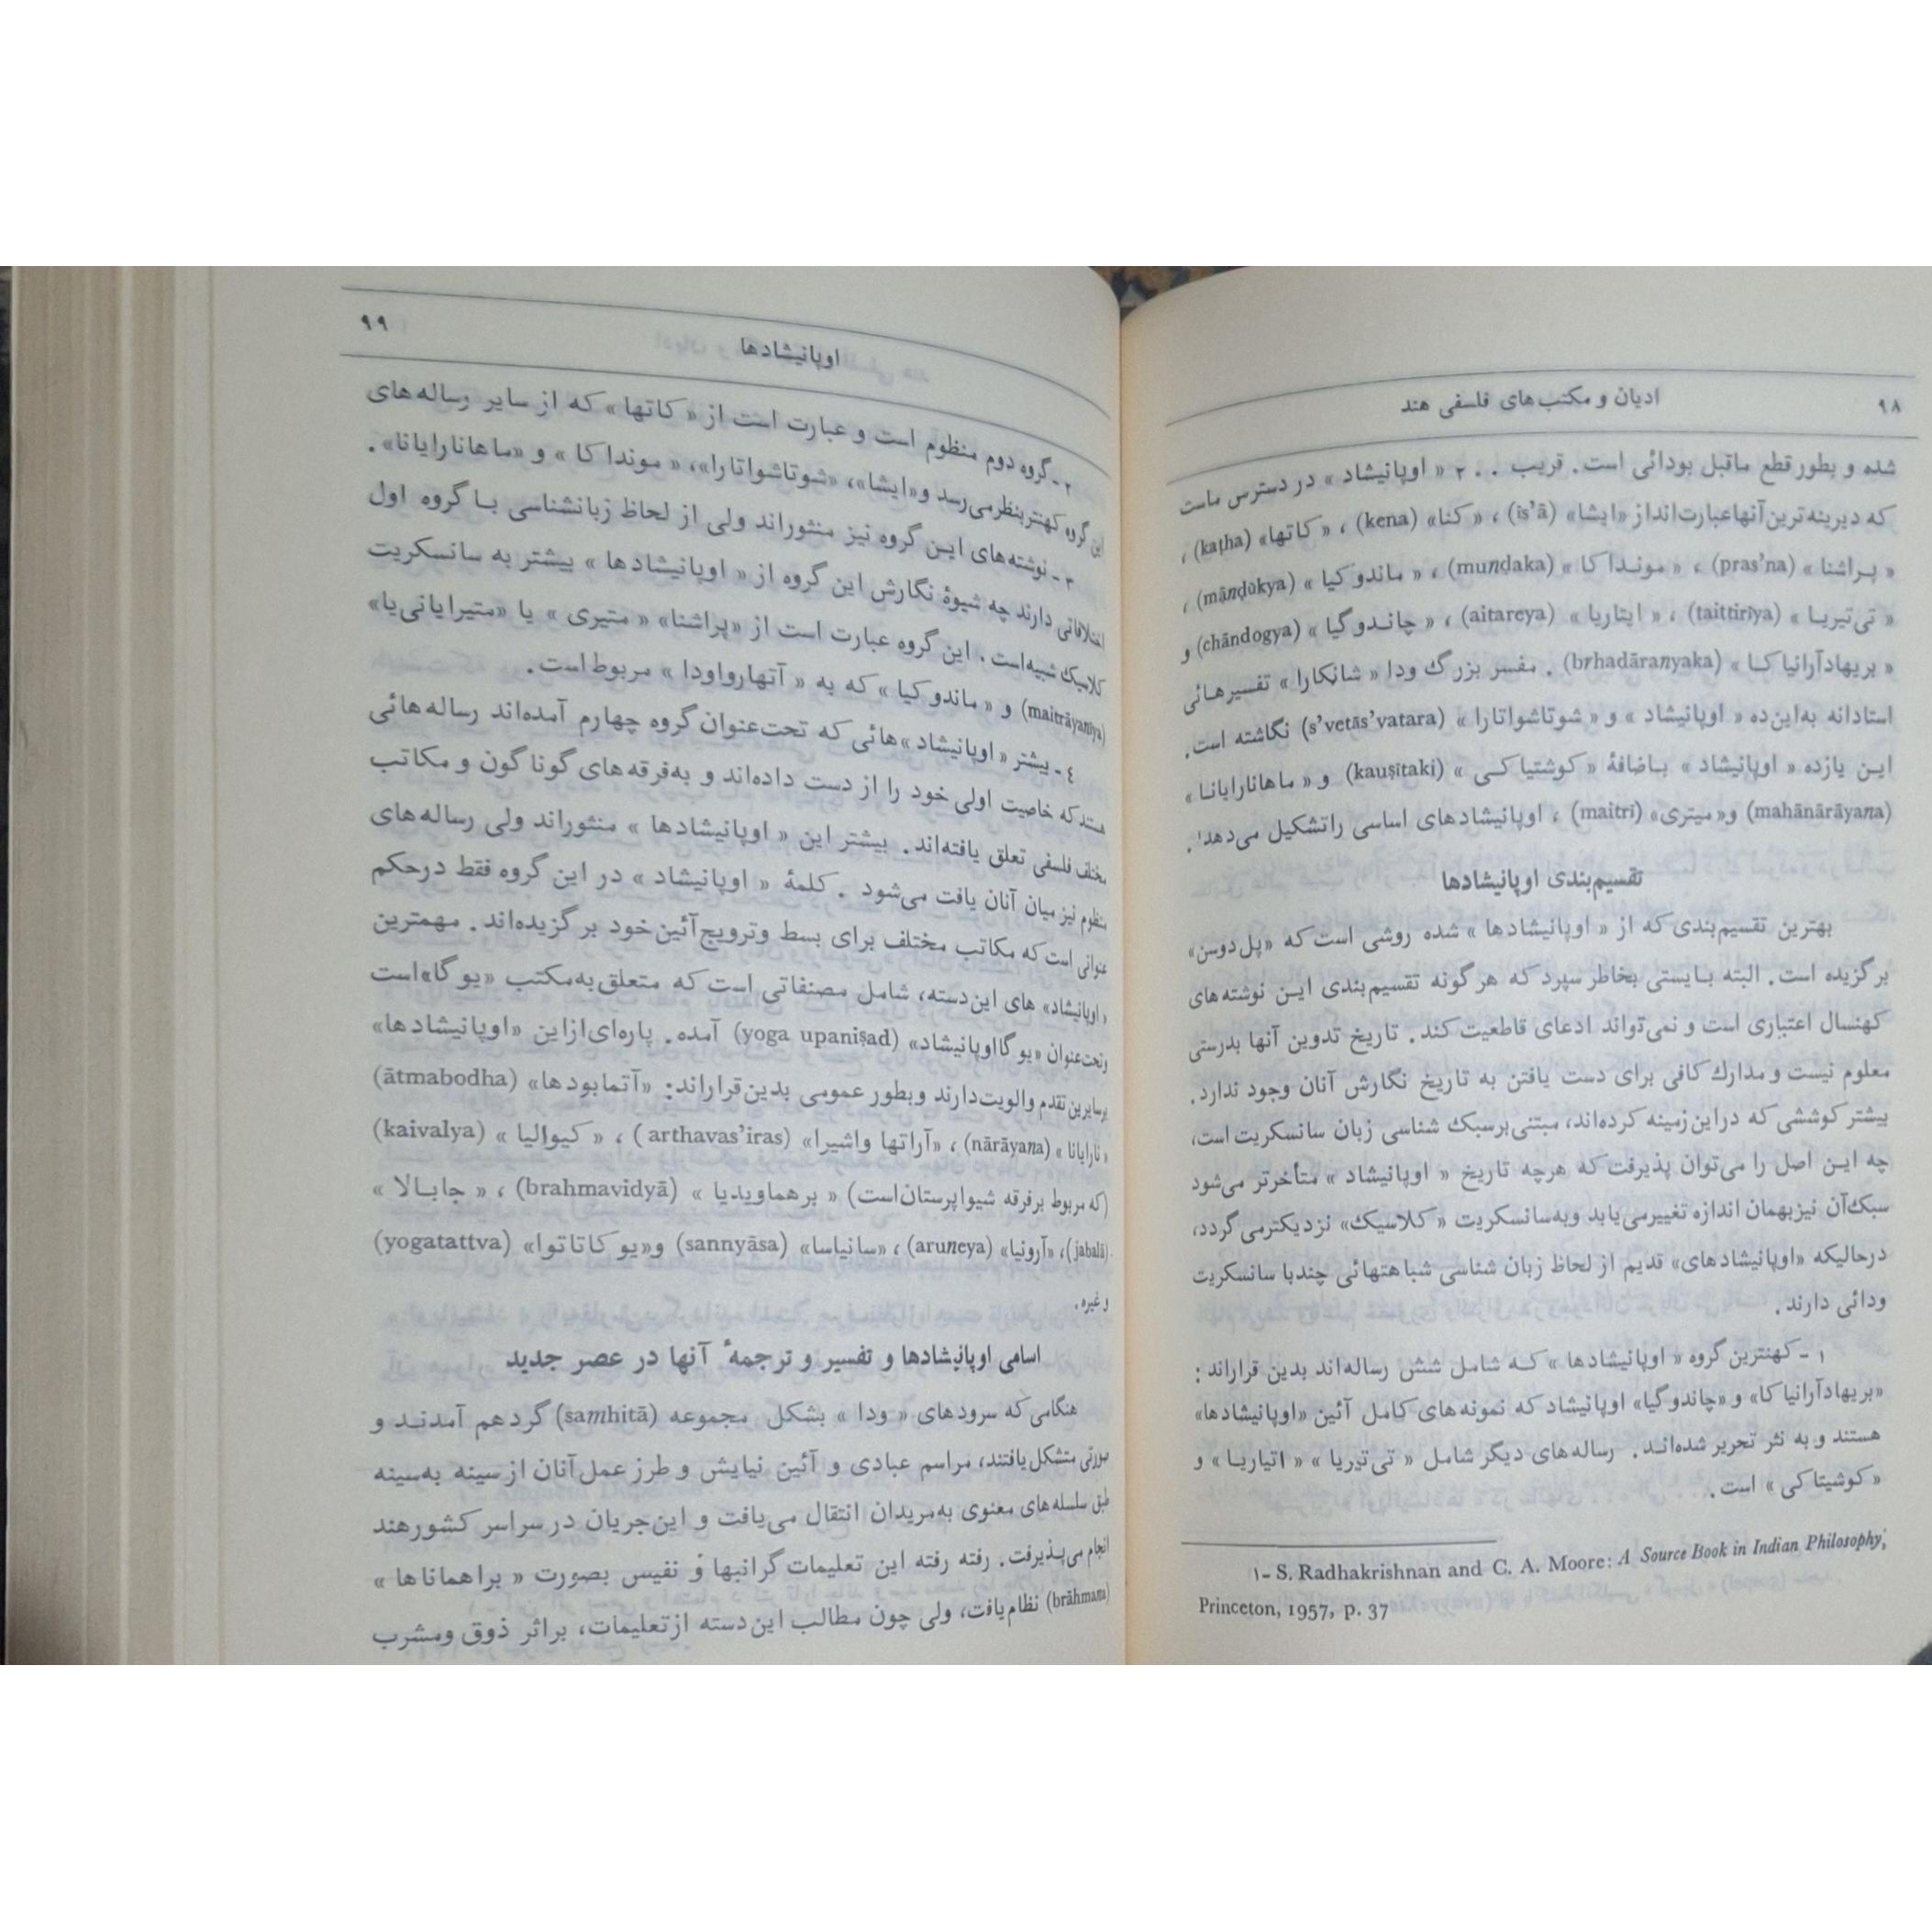 ۹۸
ادیان و مکتب‌های فلسفی هند
شده و بطور قطع ماقبل بودائی است. قریب ۲۰۰ « اوپانیشاد » در دسترس ماست
که دیرینه‌ترین آنها عبارت‌اند از «ایشا» (is'ā)، « کنا» (kena) ، « کاتها» (kaṭha) ،
« پراشنا » (pras'na) ، « موندا کا » (muṇḍaka) ، « ماندو کیا » (māṇḍūkya) ،
« تی‌تیریا » (taittirīya) ، « ایتاریا » (aitareya) ، « چاندو گیا » (chāndogya) و
« بریهادآرانیا کا » (bṛhadāraṇyaka) . مفسر بزرگ ودا « شانکارا » تفسیرهائی
استادانه به‌این ده « اوپانیشاد » و « شوتاشواتارا » (s'vetās'vatara) نگاشته است.
این یازده « اوپانیشاد » باضافهٔ « کوشتیاکی » (kauṣītaki) و « ماهانارایانا »
(mahānārāyaṇa) و« میتری» (maitri) ، اوپانیشادهای اساسی را تشکیل می‌دهد۱ .
تقسیم‌بندی اوپانیشادها
بهترین تقسیم‌بندی که از « اوپانیشادها » شده روشی است که «پل‌دوسن»
بر گزیده است. البته بایستی بخاطر سپرد که هر گونه تقسیم‌بندی این نوشته‌های
کهنسال اعتباری است و نمی‌تواند ادعای قاطعیت کند . تاریخ تدوین آنها بدرستی
معلوم نیست و مدارک کافی برای دست یافتن به تاریخ نگارش آنان وجود ندارد.
بیشتر کوششی که دراین زمینه کرده‌اند، مبتنی برسبک شناسی زبان سانسکریت است،
چه این اصل را می‌توان پذیرفت که هرچه تاریخ « اوپانیشاد » متأخرتر می‌شود
سبک‌آن نیز بهمان اندازه تغییر می‌یابد و به‌سانسکریت « کلاسیک» نزدیکتر می گردد،
درحالیکه «اوپانیشادهای» قدیم از لحاظ زبان شناسی شباهتهائی چند با سانسکریت
ودائی دارند .
۱ - کهنترین گروه « اوپانیشادها » که شامل شش رساله‌اند بدین قراراند :
«بریهادآرانیا کا» و «چاندو گیا» اوپانیشاد که نمونه‌های کامل آئین «اوپانیشادها»
هستند و به نثر تحریر شده‌اند . رساله‌های دیگر شامل « تی‌تیریا » « اتیاریا » و
« کوشیتا کی » است .
۱- S. Radhakrishnan and C. A. Moore: A Source Book in Indian Philosophy,
Princeton, 1957, p. 37
۹۹
اوپانیشادها
۲ - گروه دوم منظوم است و عبارت است از « کاتها » که از سایر رساله‌های
این گروه کهنتر بنظر می‌رسد و «ایشا»، «شوتاشواتارا»، « موندا کا » و «ماهانارایانا» .
۳ - نوشته‌های این گروه نیز منثوراند ولی از لحاظ زبانشناسی با گروه اول
اختلافاتی دارند چه شیوهٔ نگارش این گروه از « اوپانیشادها » بیشتر به سانسکریت
کلاسیک شبیه‌است . این گروه عبارت است از «پراشنا» « متیری » یا «متیرایانی‌یا»
(maitrāyaṇīya) و « ماندو کیا » که به « آتهارواودا » مربوط است.
٤ - بیشتر « اوپانیشاد »هائی که تحت‌عنوان گروه چهارم آمده‌اند رساله‌هائی
هستند که خاصیت اولی خود را از دست داده‌اند و به‌فرقه‌های گونا گون و مکاتب
مختلف فلسفی تعلق یافته‌اند . بیشتر این « اوپانیشادها » منثوراند ولی رساله‌های
منظوم نیز میان آنان یافت می‌شود . کلمهٔ « اوپانیشاد » در این گروه فقط درحکم
عنوانی است که مکاتب مختلف برای بسط وترویج آئین خود بر گزیده‌اند . مهمترین
« اوپانیشاد» های این‌دسته، شامل مصنفاتی است که متعلق به‌مکتب «یو گا»است
وتحت‌عنوان «یو گااوپانیشاد» (yoga upaniṣad) آمده . پاره‌ای‌ازاین «اوپانیشادها»
برسایرین تقدم والویت‌دارند وبطور عمومی بدین‌قراراند: «آتمابودها» (ātmabodha)
« نارایانا » (nārāyaṇa) ، «آراتها واشیرا» (arthavas'iras ) ، « کیوالیا » (kaivalya)
(که مربوط برفرقه شیواپرستان‌است) « برهماویدیا » (brahmavidyā) ، « جابالا »
(jabalā)، «آرونیا» (aruṇeya) ، «سانیاسا» (sannyāsa) و«یو کاتاتوا» (yogatattva)
و غیره .
اسامی اوپانیشادها و تفسیر و ترجمهٔ آنها در عصر جدید
هنگامی که سرودهای « ودا » بشکل مجموعه (saṃhitā) گردهم آمدند و
صورتی متشکل یافتند، مراسم عبادی و آئین نیایش و طرز عمل‌آنان از سینه به‌سینه
طبق سلسله‌های معنوی به‌مریدان انتقال می‌یافت و این‌جریان در سراسر کشورهند
انجام می‌پذیرفت. رفته رفته این تعلیمات گرانبها و نفیس بصورت « براهماناها »
(brāhmaṇa) نظام‌یافت، ولی چون مطالب این‌دسته ازتعلیمات، براثر ذوق ومشرب